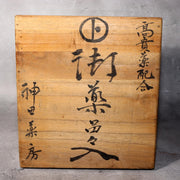 高貴薬配合
御薬品入
神田薬房